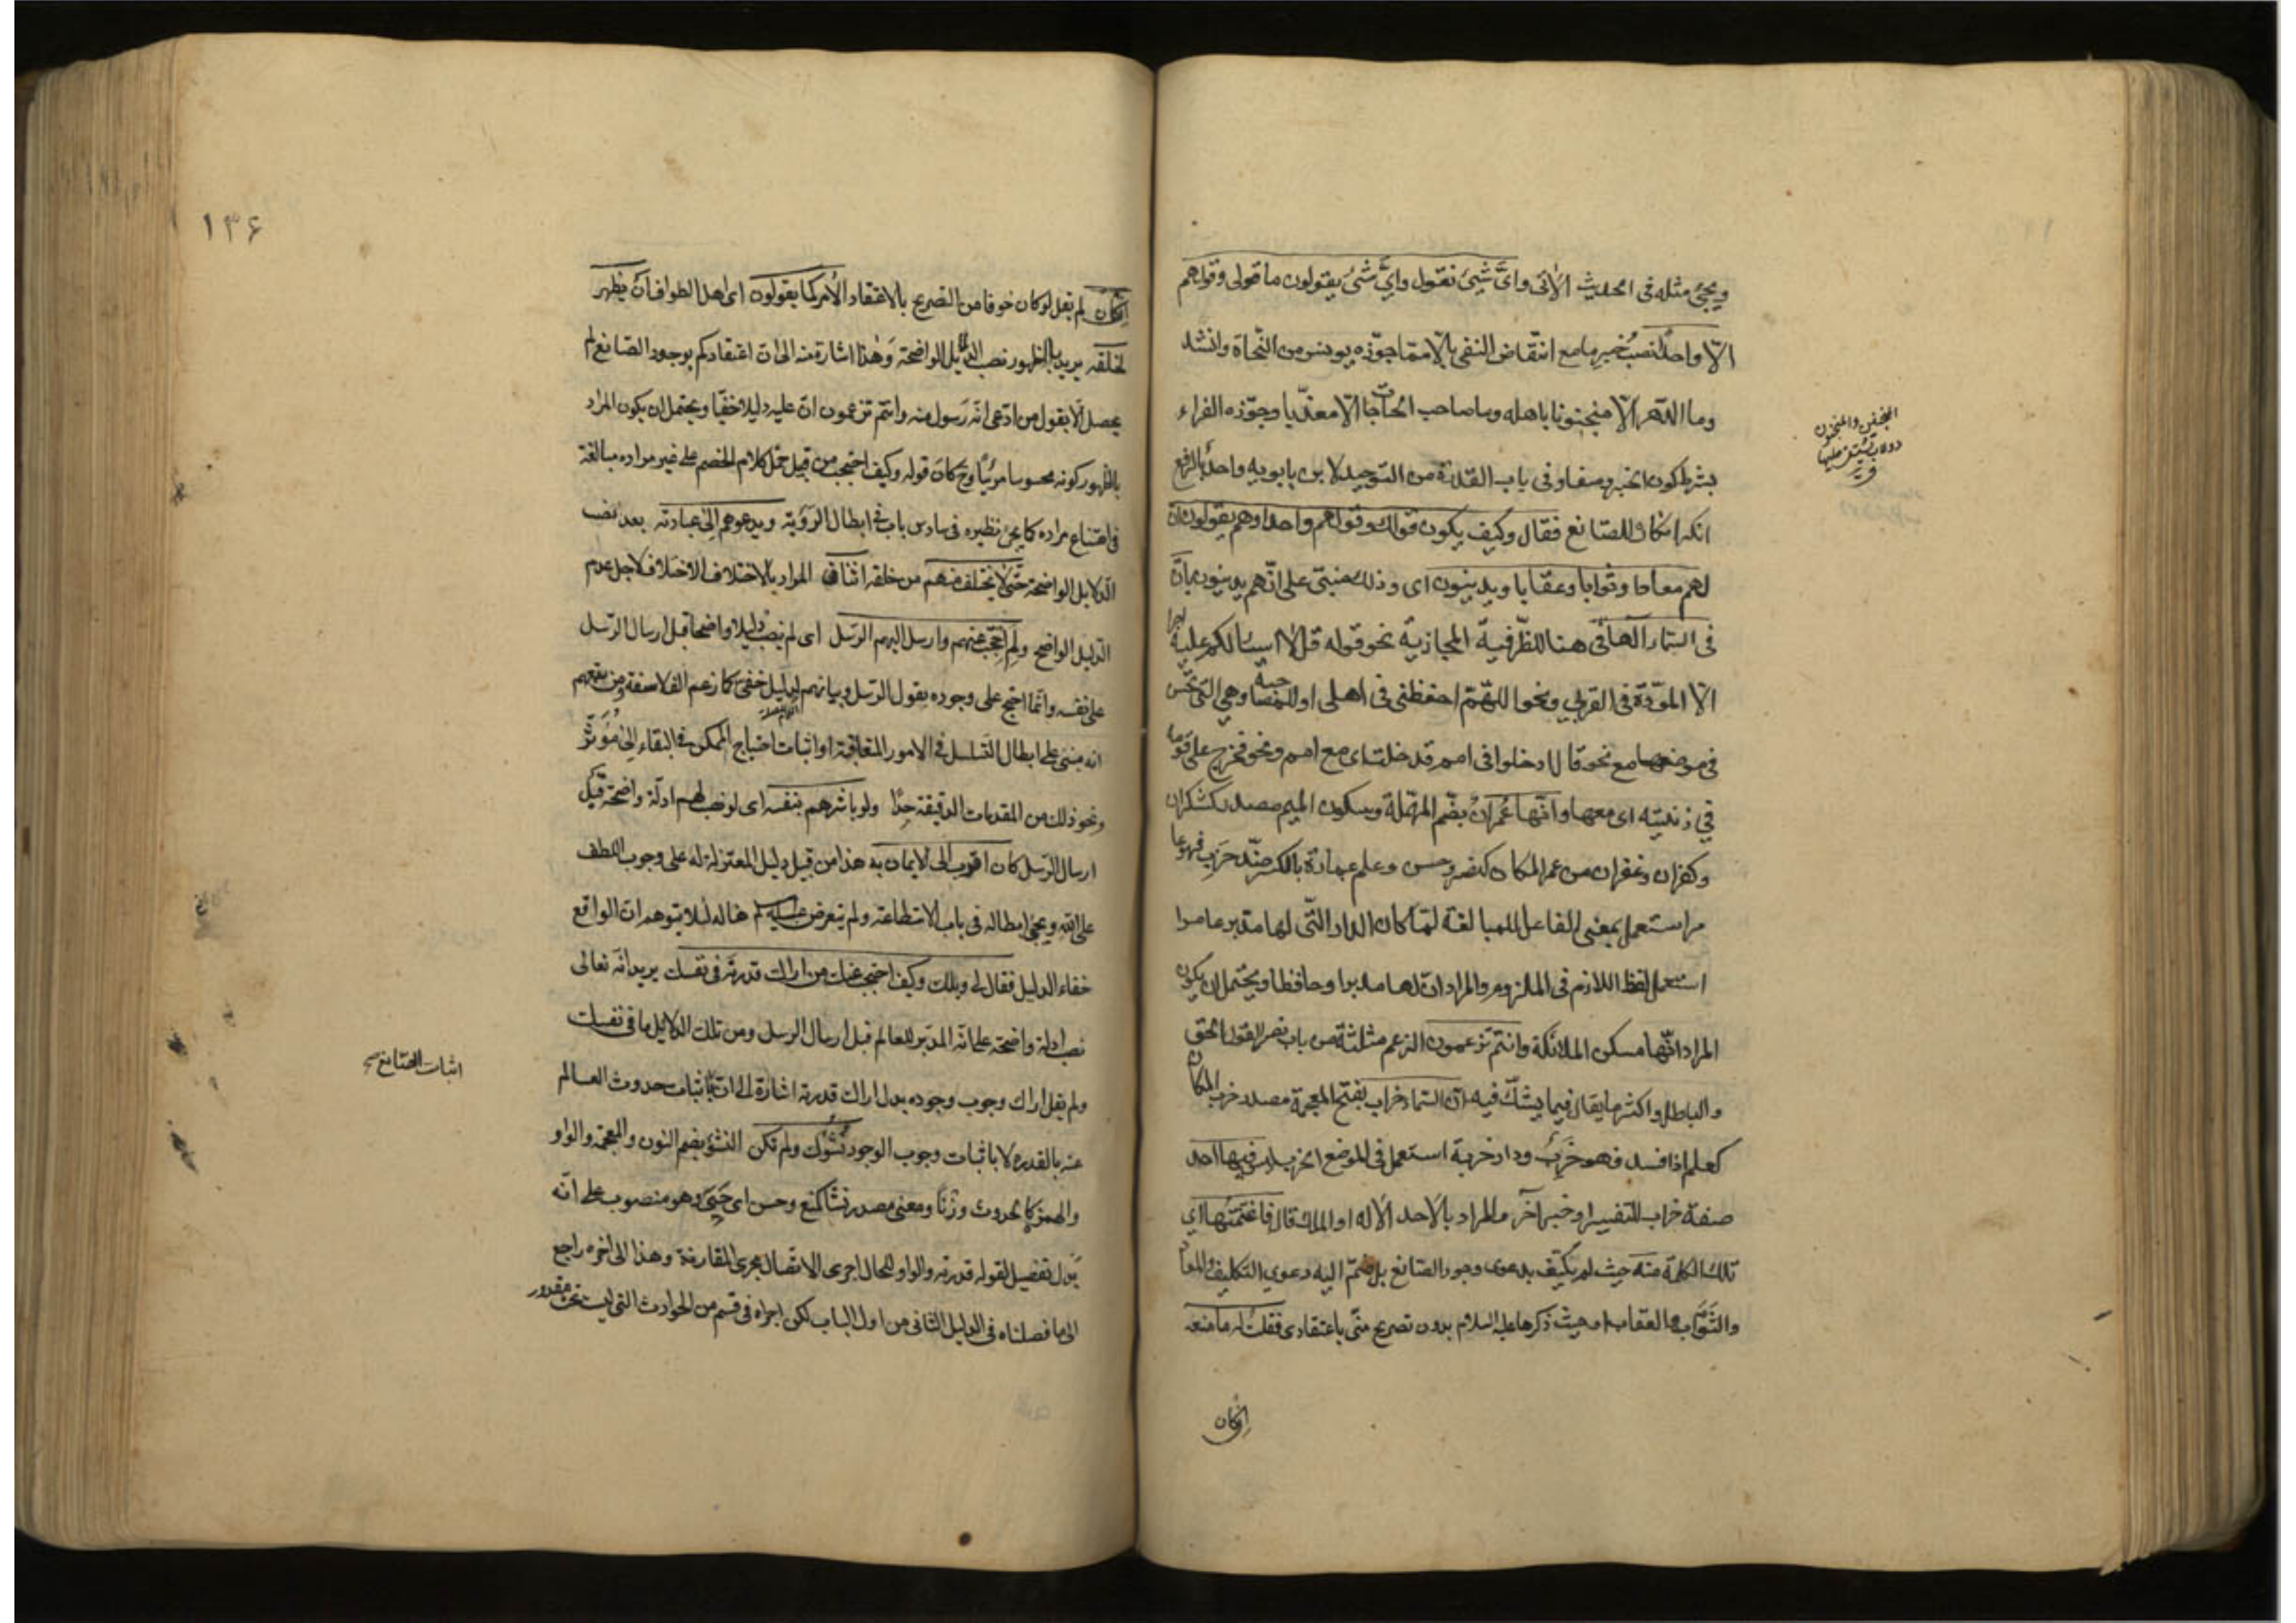 ويجئ مثله في الحديث الآتي وأيَّ شيئ نقول وأيَّ شئ يقولون ما قولي وقولهم
الّا واحدًا نصبُ خبرِ ما مع انتقاض النفي بالّا ممّا جوّزه يونس من النحاة وانشد
وما الدّهر الّا منجنونا باهله وما صاحب الحاجات الّا معذّبا وجوّزه الفراء
بشرط كون الخبر وصفا وفي باب القدرة من التوحيد لابن بابويه واحدٌ بالرفع
انكر امكان الصانع فقال وكيف يكون قولك وقولهم واحدا وهم يقولون انّ
لهم معادا وثوابا وعقابا ويدينون اى وذلك مبنيّ على انّهم يدينون بانّ
في السّماء الها في هنا للظّرفيّة المجازيّة نحو قوله قل لا اسئالكم عليه اجرا
الّا المودّة في القربي ونحو اللهّم احفظني في اهلي او للمصاحبة وهي التي تحسن
في موضعها مع نحو قال ادخلوا في امم قد خلت اى مع امم ونحو فخرج على قومه
في زينته اى معها وانّها عُمران بضّم المهملة وسكون الميم مصدر كشكران
وكفران وغفران من عمر المكان كنصر وحسن وعلم عمارة بالكسر ضدّ خرب فهو عا
مر استعمل بمعنى الفاعل للمبالغة لمّا كان الدار التّى لها مدبر عامرا
استعمل لفظ اللازم في الملزوم والمراد انّ لها مدبرا وحافظا ويحتمل ان يكون
المراد انّها مسكن الملائكة وانتم تزعمون الزعم مثلثة من باب نصر القول الحق
والباطل واكثر ما يقال فيما يشكّ فيه انّ السّماء خراب بفتح المعجمة مصدر خرب المكان
كعلم اذا فسد فهو خَرِبٌ ودار خربة استعمل في الموضع الخرب ليس فيها احد
صفة خراب للتفسير او خبر آخر والمراد بالاحد الاله او الملك قال فاغتمتنها اي
تلك الكلمة منه حيث لم يكتف بدعوى وجود الصانع بل ضمّ اليه دعوي التكليف والمعاد
والثّواب والعقاب او حيث ذكرها عليه السلام بدون تصريح منّي باعتقادى فقلت له ما منعه
إن كان
المنجنون
دولاب يستقى عليها
١٣۶
إن كان لم يقل لو كان خوفا من التصريح بالاعتقاد الأمر كما يقولون اى اهل الطواف ان يظهر
لخلقه يريد بالظهور نصب الدلايل الواضحة وهذا اشارة منه الى ان اعتقادكم بوجود الصّانع لم
يحصل الّا بقول من ادّعى انّه رسول منه وانتم تزعمون انّ عليه دليلا خفيّا ويحتمل ان يكون المراد
بالظهور كونه محسوسا مرئيّا وح كان قوله وكيف احتجب من قبيل حمل كلام الخصم على غير مراده مبالغة
في امتناع مراده كما يجئ نظيره في سادس باب في ابطال الرؤية ويدعوهم إلى عبادته بعد نصب
الدّلايل الواضحة حتّى لا يختلف منهم من خلقه اثنان المراد بالاختلاف الاختلاف لاجل عدم
الدّليل الواضح ولِمَ احتجب عنهم وارسل اليهم الرّسل اى لم ينصب دليلا واضحا قبل ارسال الرّسل
على نفسه وانّما احتج على وجوده بقول الرّسل وبيانهم لدليل خفي كما زعم الفلاسفة ومن تبعهم
انه مبني على ابطال التسلسل في الامور المتعاقبة او اثبات احتياج الممكن في البقاء إلى مُؤَثّر
ونحو ذلك من المقدمات الدقيقة جدّا ولو باشرهم بنفسه اى لو نصب لهم ادلّة واضحة قبل
ارسال الرّسل كان اقرب الى الايمان به هذا من قبيل دليل المعتزلة على وجوب اللطف
على الله ويجئ ابطاله في باب الاستطاعة ولم يتعرض عليه السلام هنا له لئلا يتوهم ان الواقع
خفاء الدليل فقال لي ويلك وكيف احتجب عنك من اراك قدرته في نفسك يريد انّه تعالى
نصب ادلة واضحة على انّه المدبّر للعالم قبل ارسال الرسل ومن تلك الدلايل ما في نفسك
ولم يقل اراك وجوب وجوده بدل اراك قدرته اشارة الى ان اثبات حدوث العالم
عنه بالقدرة لا باثبات وجوب الوجود نُشُوءَك ولم تكن النشؤ بضم النون والمعجمة والواو
والهمز كالحدوث وزنًا ومعنى مصدر نشأ كمنع وحسن اى حَيِيَ وهو منصوب على انّه
بدل تفصيل لقوله قدرته والواو للحال اجرى الاتصال مجرى المقارنة وهذا الى آخره راجع
الى ما فصلناه في الدليل الثانى من اول الباب لكن اجراه في قسم من الحوادث التي ليست تحت مقدور
اثبات الصّانع صح